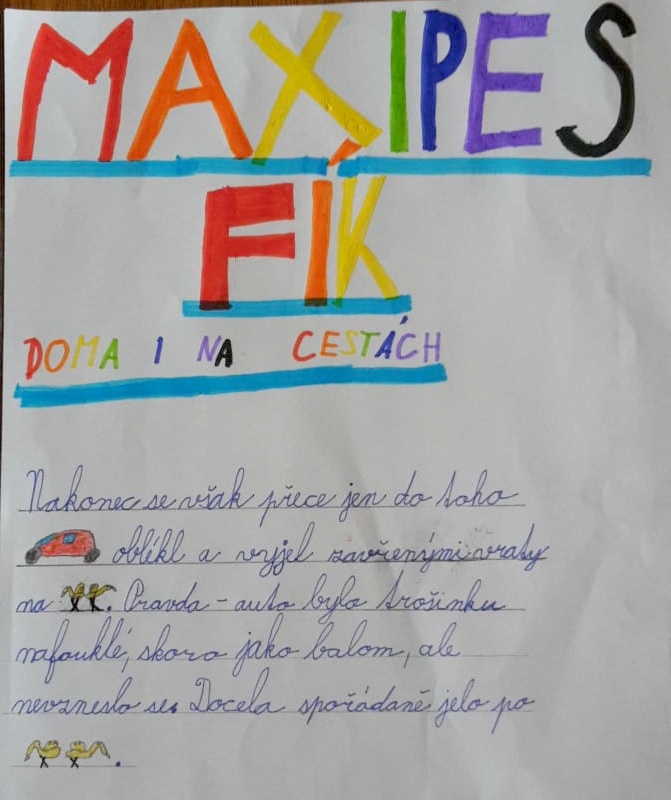 MAXIPES
FÍK
DOMA I NA CESTÁCH
Nakonec se však přece jen do toho
oblékl a vyjel zavřenými vraty
na . Pravda - auto bylo trošinku
nafouklé, skoro jako balom, ale
nevzneslo se. Docela spořádaně jelo po
.